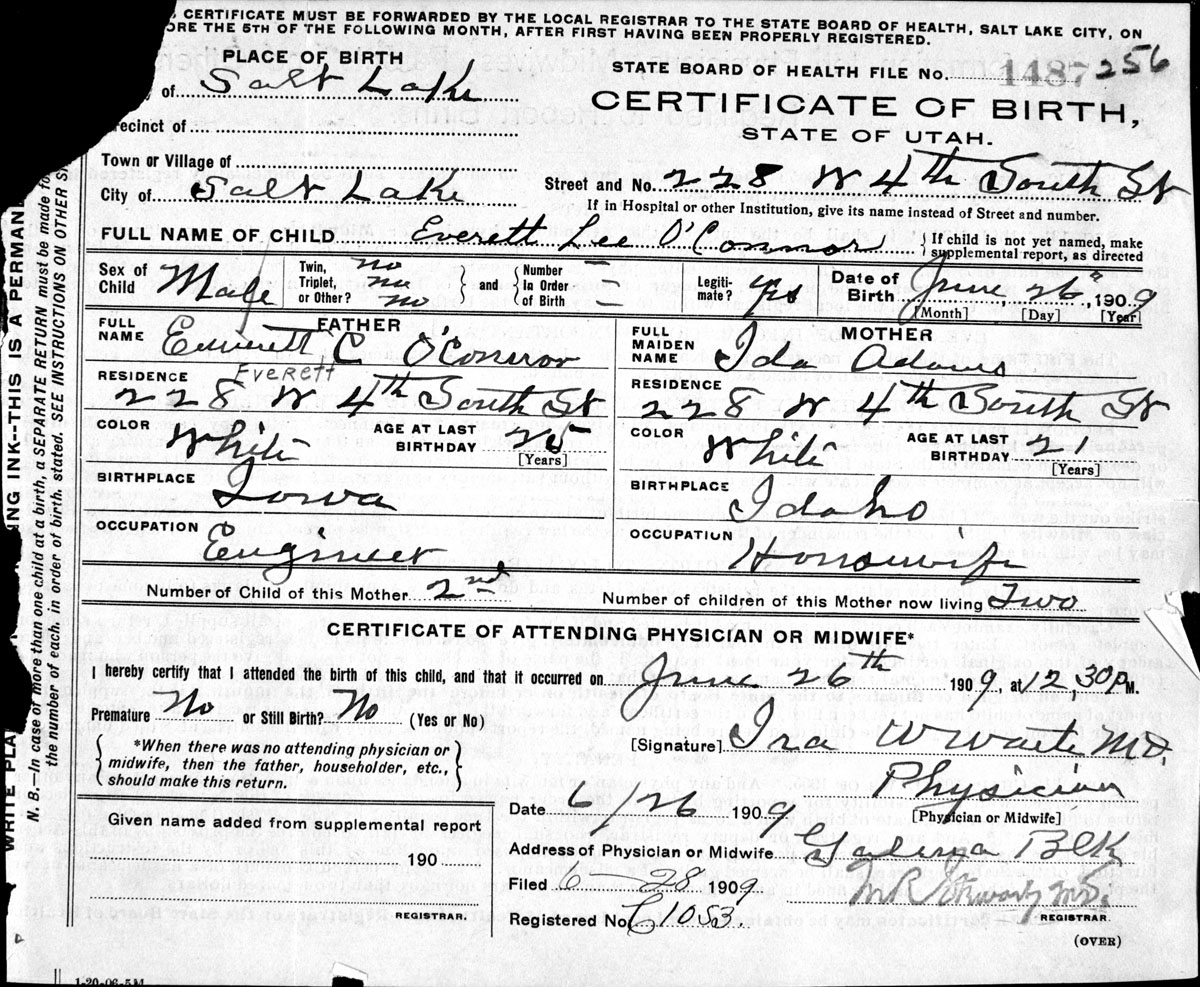 CERTIFICATE MUST BE FORWARDED BY THE LOCAL REGISTRAR TO THE STATE BOARD OF HEALTH, SALT LAKE CITY, ON
ORE THE 5TH OF THE FOLLOWING MONTH, AFTER FIRST HAVING BEEN PROPERLY REGISTERED.
PLACE OF BIRTH
y of Salt Lake
recinct of
Town or Village of
City of Salt Lake
STATE BOARD OF HEALTH FILE No. 1487 256
CERTIFICATE OF BIRTH,
STATE OF UTAH.
Street and No. 228 W 4th South St
If in Hospital or other Institution, give its name instead of Street and number.
FULL NAME OF CHILD Everett Lee O'Connor } If child is not yet named, make supplemental report, as directed
Sex of Child Male Twin, Triplet, or Other? no no no } and { Number In Order of Birth – – Legitimate? Yes Date of Birth June 26", 1909
[Month] [Day] [Year]
FATHER
FULL NAME Emmett C O'Connor
Everett
RESIDENCE 228 W 4th South St
COLOR White AGE AT LAST BIRTHDAY [Years]
BIRTHPLACE Iowa
OCCUPATION Engineer
MOTHER
FULL MAIDEN NAME Ida Adams
RESIDENCE 228 W 4th South St
COLOR White AGE AT LAST BIRTHDAY 21 [Years]
BIRTHPLACE Idaho
OCCUPATION Housewife
Number of Child of this Mother 2nd Number of children of this Mother now living Two
CERTIFICATE OF ATTENDING PHYSICIAN OR MIDWIFE*
I hereby certify that I attended the birth of this child, and that it occurred on June 26th 1909, at 12,30 P.M.
Premature No or Still Birth? No (Yes or No)
{ *When there was no attending physician or midwife, then the father, householder, etc., should make this return. }
[Signature] Ira W Waite M.D.
Physician
[Physician or Midwife]
Given name added from supplemental report
190
REGISTRAR.
Date 6/26 1909
Address of Physician or Midwife Blk
Filed 6 28 1909
M.D. REGISTRAR
Registered No. C1053.
(OVER)
1-20-06-5M
WRITE PLA
ING INK--THIS IS A PERMAN
N. B.—In case of more than one child at a birth, a SEPARATE RETURN must be made fo
the number of each, in order of birth, stated. SEE INSTRUCTIONS ON OTHER S